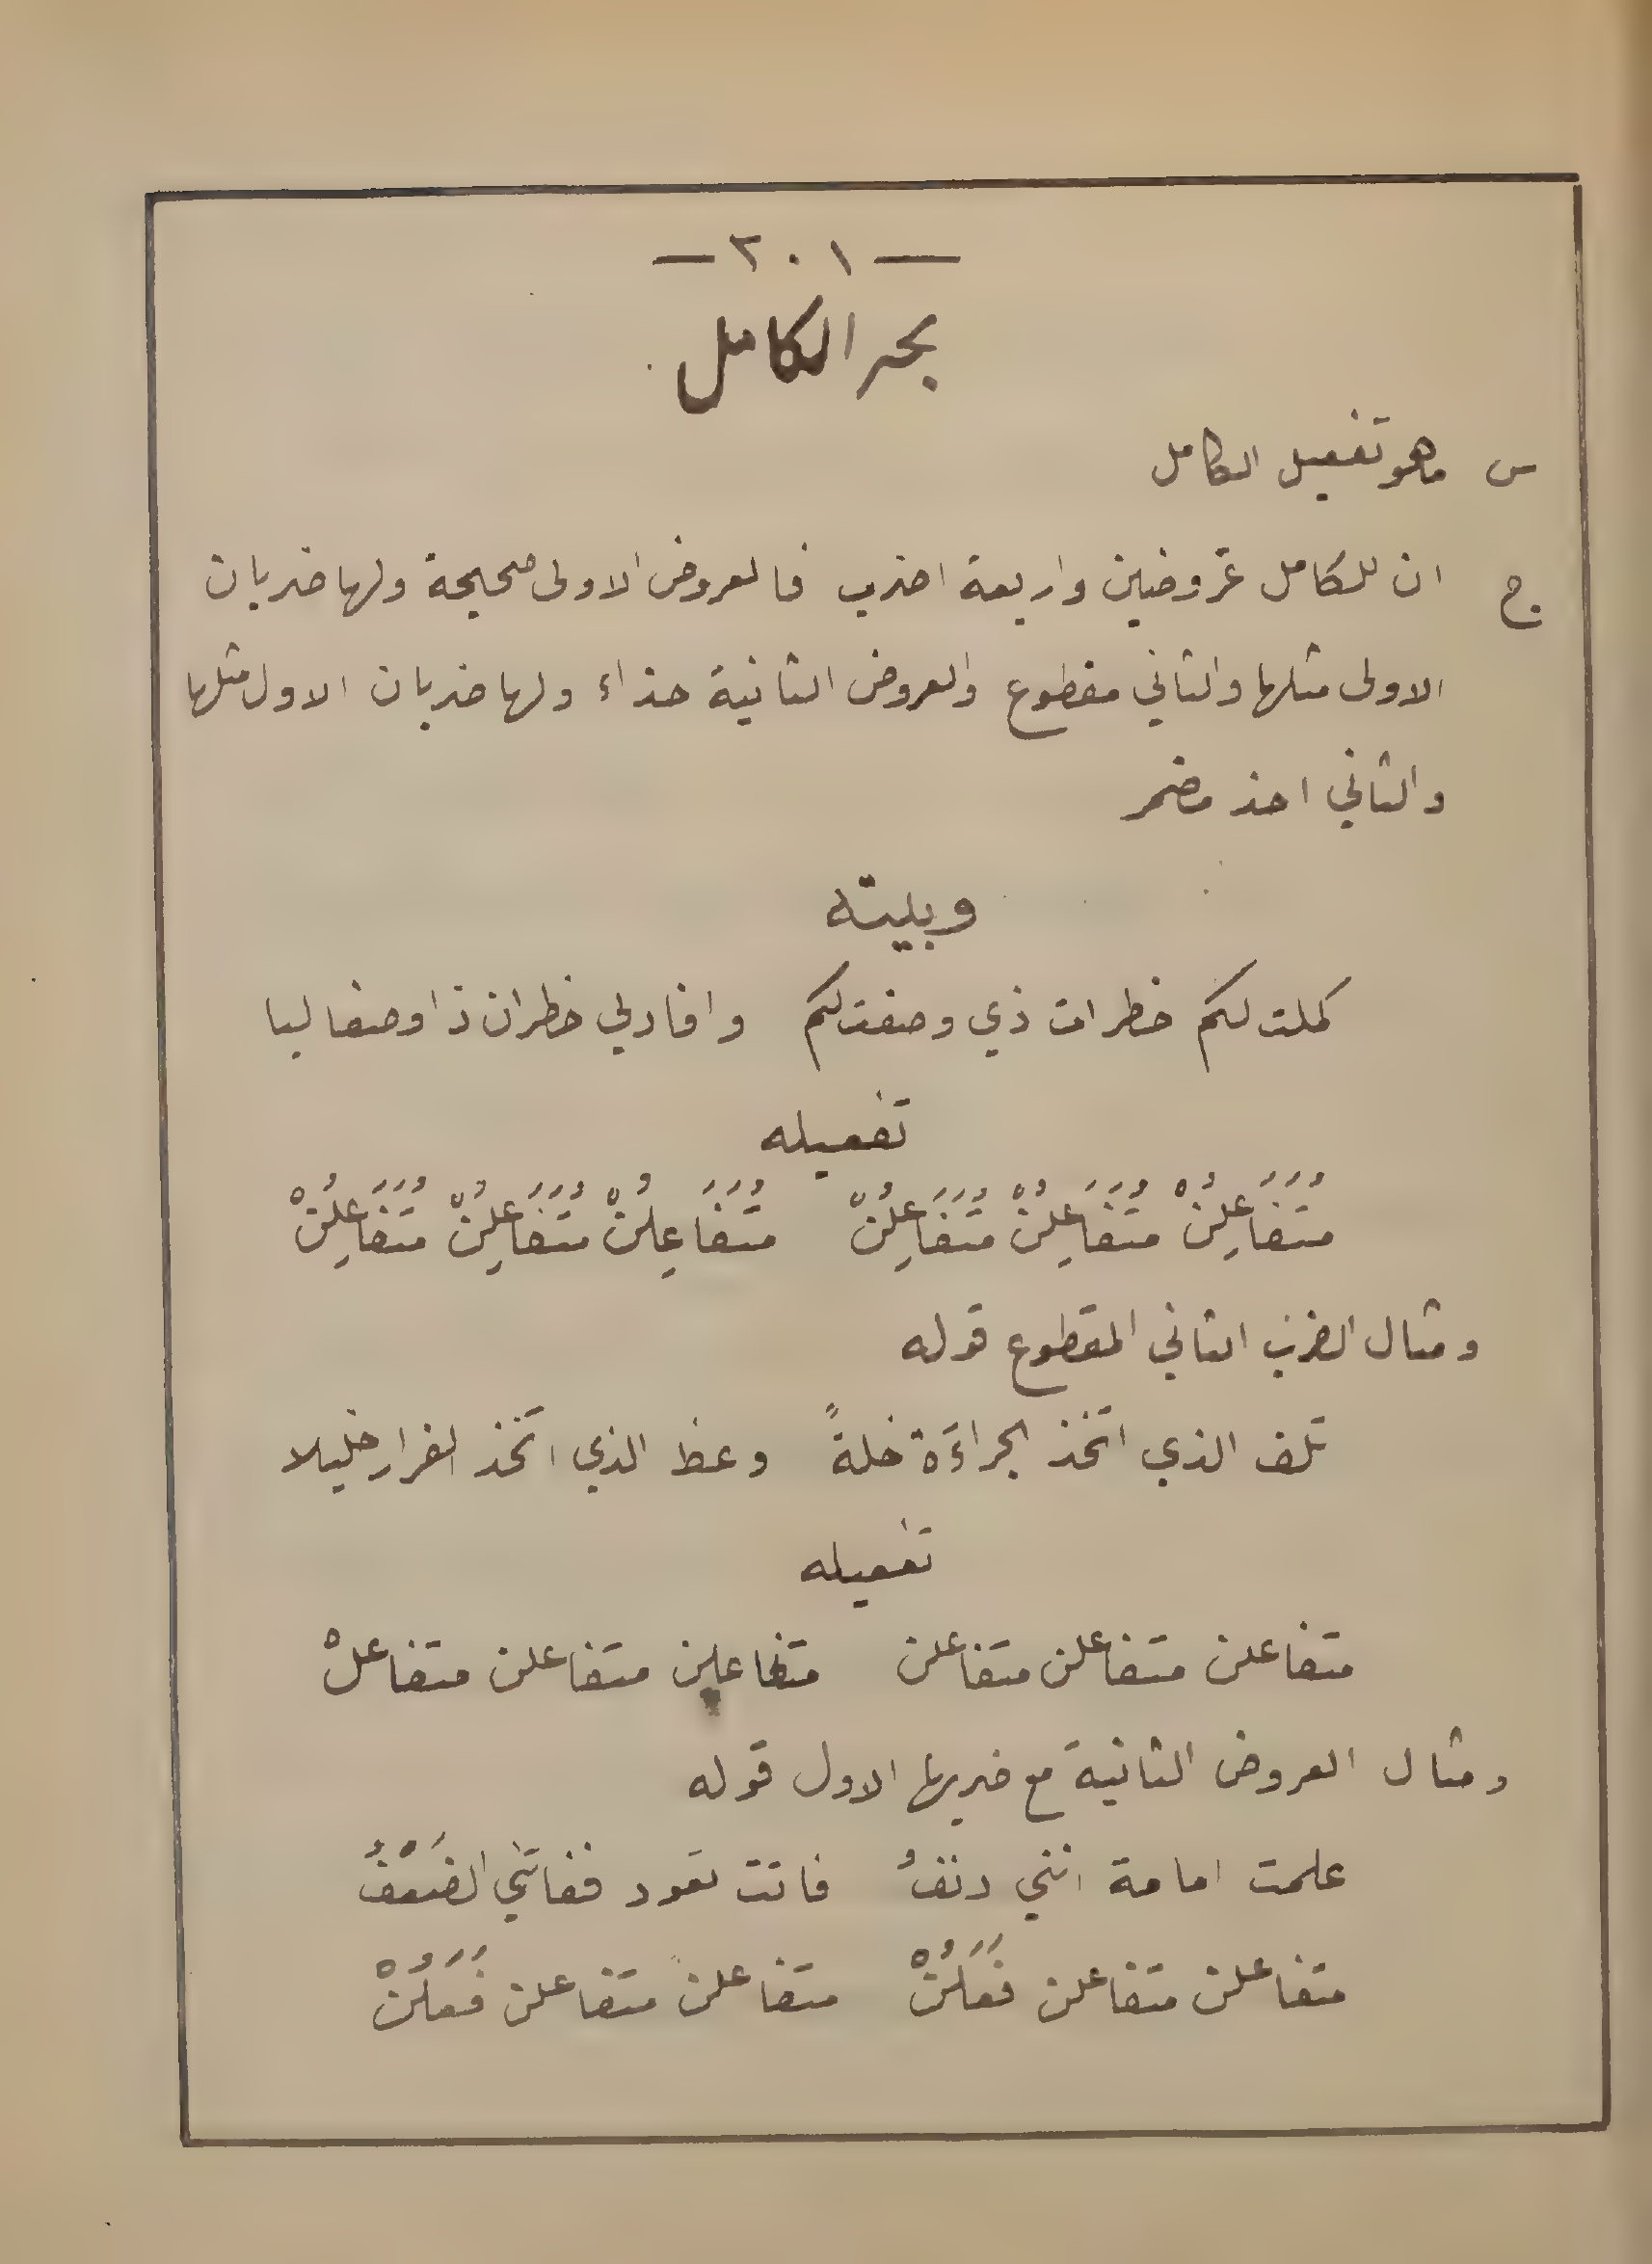 — ٢٠١ —
بحر الكامل
س ما هو تفعيل الكامل
ج ان للكامل عروضين واربعة اضرب فالعروض الاولى صحيحة ولها ضربان
الاولى مثلها والثاني مقطوع والعروض الثانية حذاء ولها ضربان الاول مثلها
والثاني احذ مضمر
وبيته
كملت لكم خطرات ذي وصفت لكم وافادلي خطران ذا وصفا ليا
تفعيله
مُتَفَاعِلُنْ مُتَفَاعِلُنْ مُتَفَاعِلُنْ مُتَفَاعِلُنْ مُتَفَاعِلُنْ مُتَفَاعِلُنْ
ومثال الضرب الثاني المقطوع قوله
تلف الذي اتخذ الجراءَة خلةً وعظ الذي اتخذ الفرار خليلا
تفعيله
متفاعلن متفاعلن متفاعلن متفاعلن متفاعلن متفاعلْ
ومثال العروض الثانية مع ضربها الاول قوله
علمت امامة انني دنفُ فاتت تعود ففاتني الضَعْفُ
متفاعلن متفاعلن فَعَلُنْ متفاعلن متفاعلن فَعَلُنْ